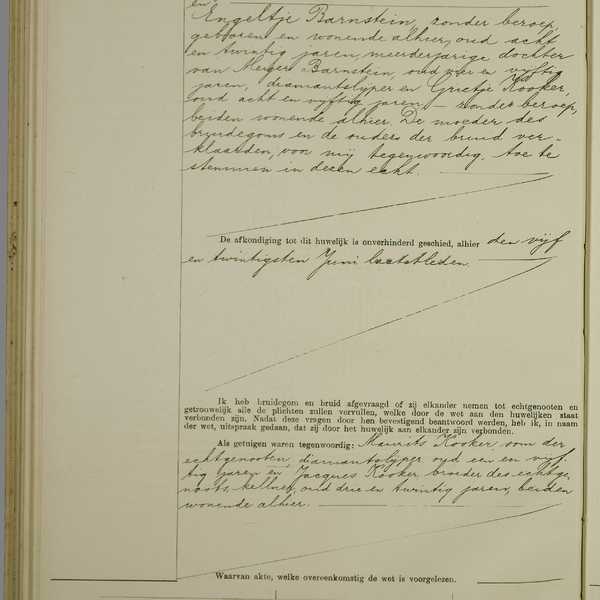 en
Engeltje Barnstein, zonder beroep,
geboren en wonende alhier, oud acht
en twintig jaren, meerderjarige dochter
van Meijer Barnstein, oud vier en vijftig
jaren, diamantslijper en Grietje Kooker,
oud acht en vijftig jaren, zonder beroep,
beiden wonende alhier. De moeder des
bruidegoms en de ouders der bruid ver-
klaarden, voor mij tegenwoordig, toe te
stemmen in dezen echt.
De afkondiging tot dit huwelijk is onverhinderd geschied, alhier den vijf
en twintigsten Juni laatstleden.
Ik heb bruidegom en bruid afgevraagd of zij elkander nemen tot echtgenooten en
getrouwelijk alle de plichten zullen vervullen, welke door de wet aan den huwelijken staat
verbonden zijn. Nadat deze vragen door hen bevestigend beantwoord werden, heb ik, in naam
der wet, uitspraak gedaan, dat zij door het huwelijk aan elkander zijn verbonden.
Als getuigen waren tegenwoordig: Maurits Kooker, oom der
echtgenooten, diamantslijper, oud een en vijf-
tig jaren en Jacques Kooker broeder des echtge-
noots, kellner, oud drie en twintig jaren, beiden
wonende alhier.
Waarvan akte, welke overeenkomstig de wet is voorgelezen.